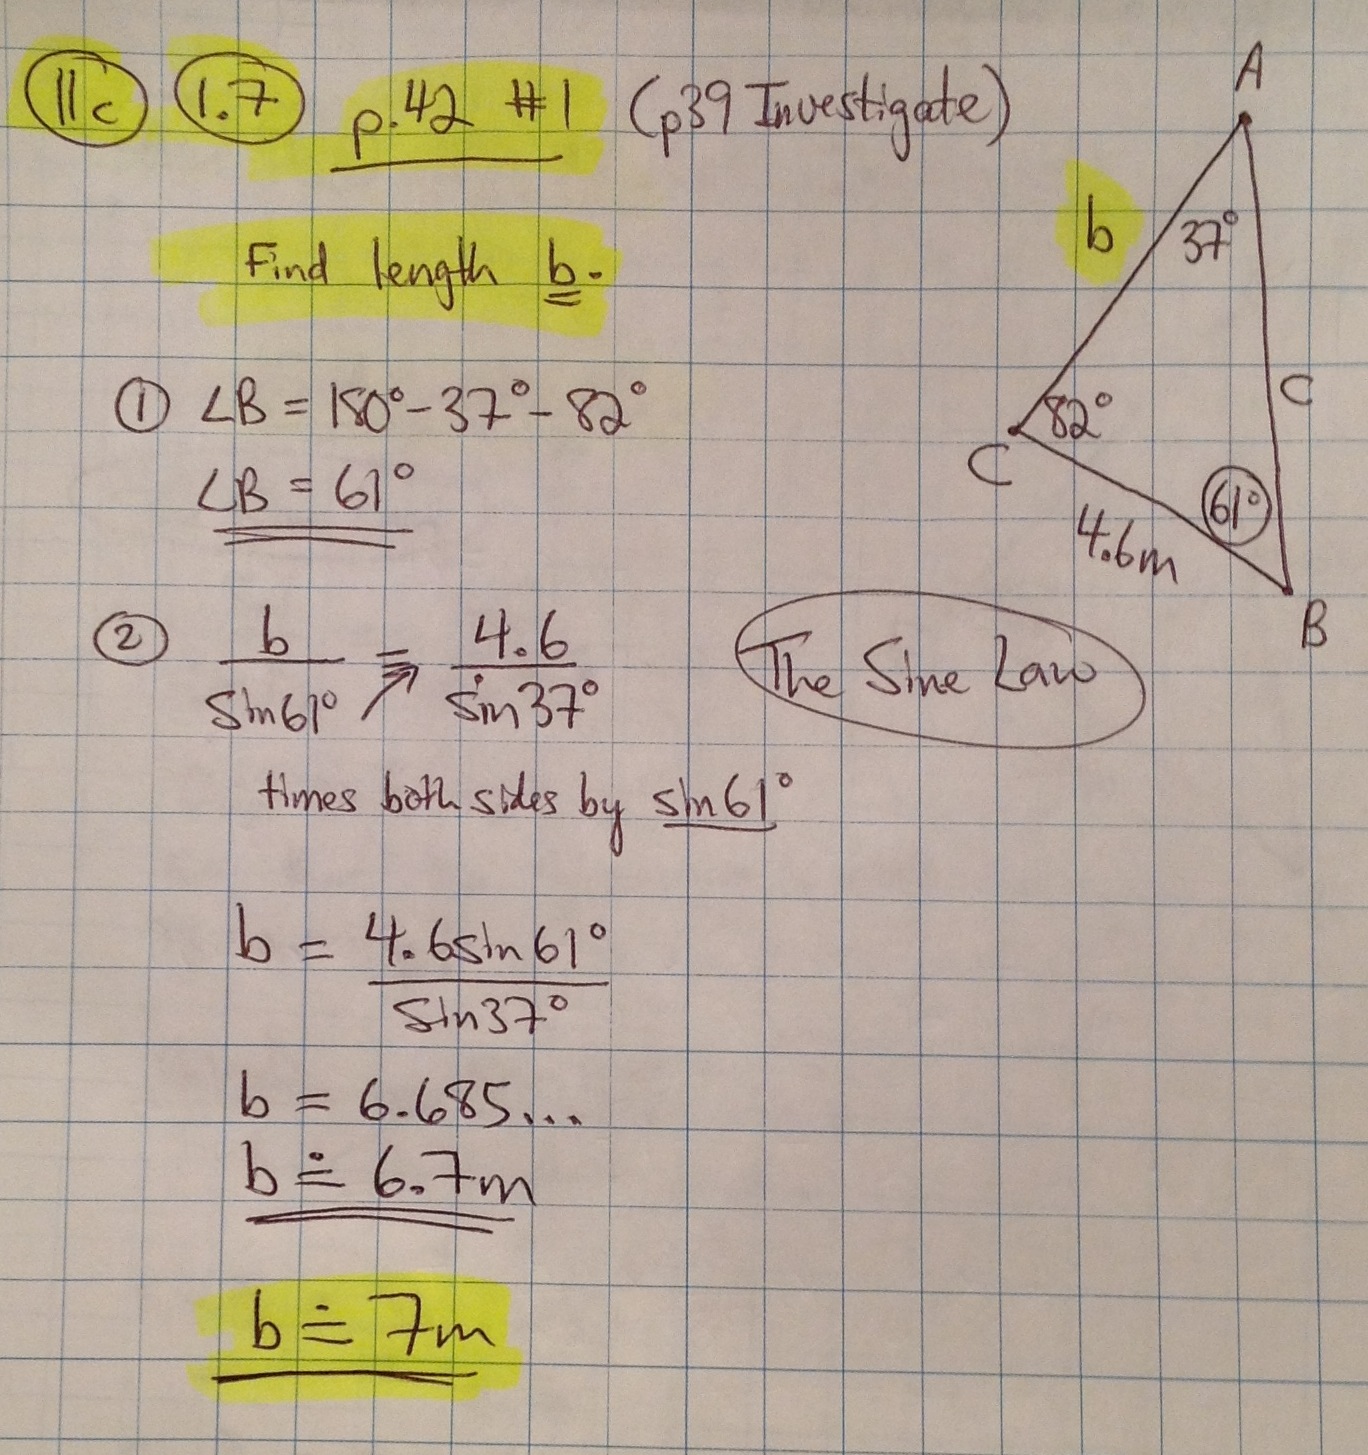 11c 1.7 p.42 #1 (p39 Investigate)
Find length b.
① ∠B = 180° - 37° - 82°
∠B = 61°
② b/sin61° = 4.6/sin37°
The Sine Law
times both sides by sin61°
b = 4.6sin61°/sin37°
b = 6.685...
b ≐ 6.7m
b ≐ 7m
A
b
37°
82°
C
c
61°
4.6m
B